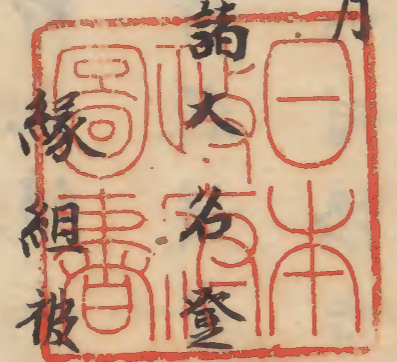 月
諸大名登
縁組被
日本
政府
圖書